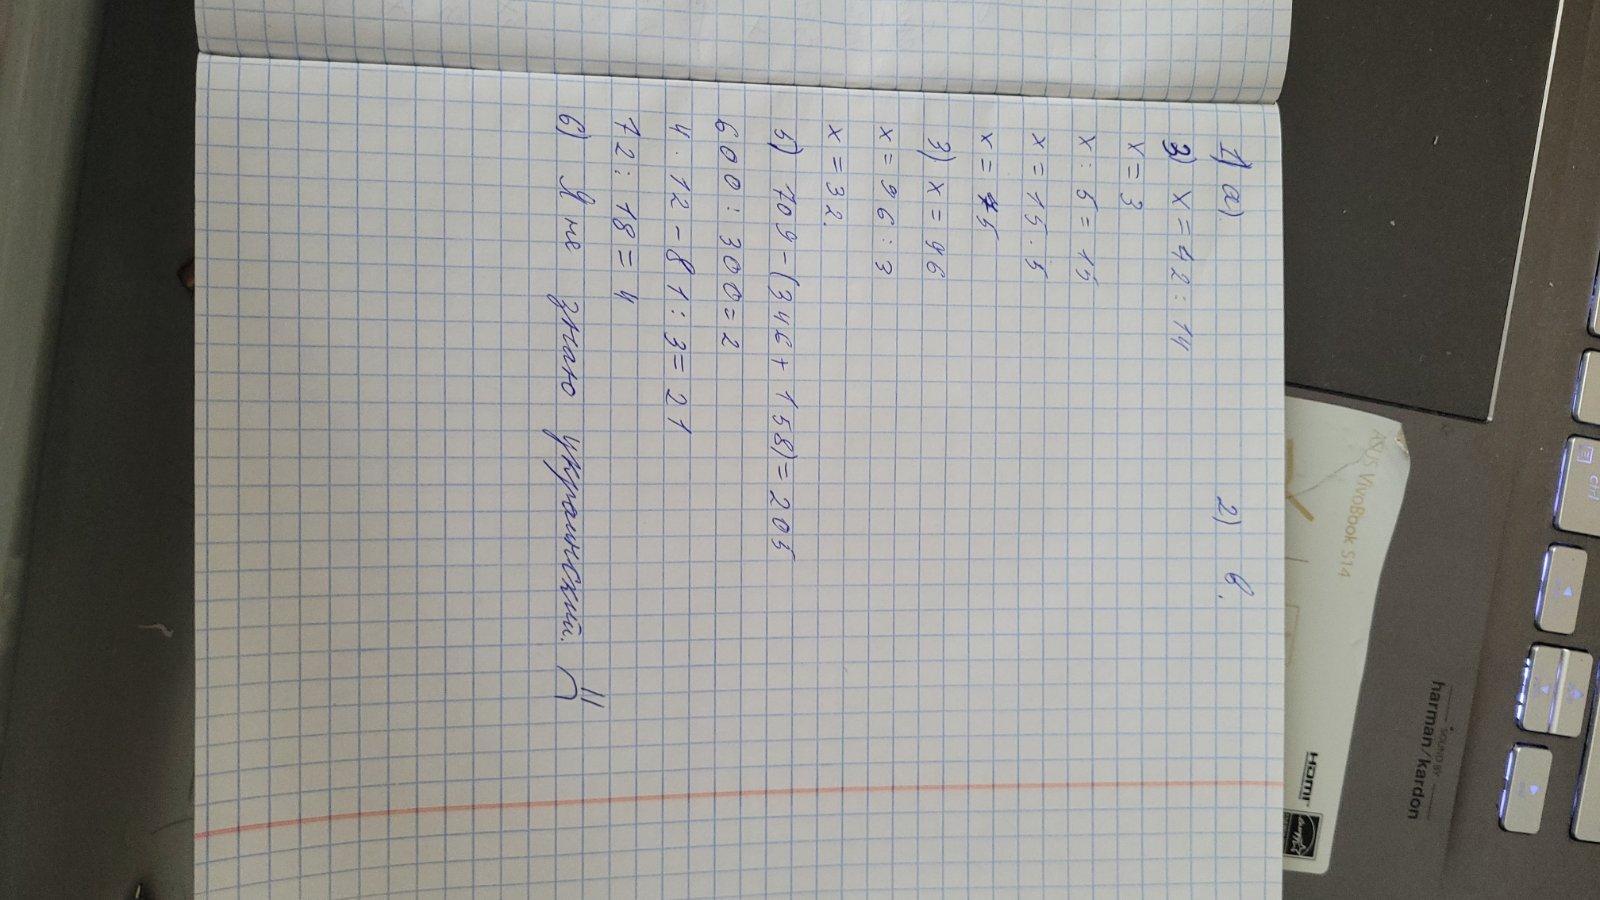 1) а). 2) в.
3) x = 42 : 14
x = 3
x : 5 = 15
x = 15 . 5
x = 75
3) x = 96
x = 96 : 3
x = 32.
5) 709 - (346 + 158) = 205
600 : 300 = 2
4 . 12 - 81 : 3 = 21
72 : 18 = 4
6) Я не знаю украинский.
ASUS VivoBook S14
SOUND BY
harman/kardon
HDMI
Ctrl